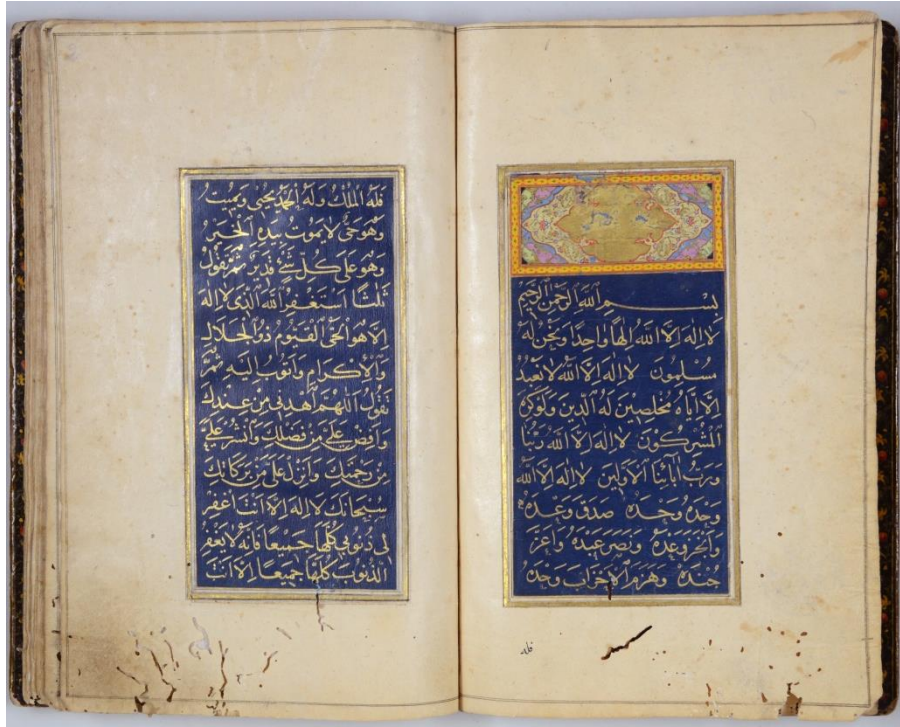 بسم الله الرحمن الرحيم
لا اله الا الله الها واحدا ونحن له
مسلمون لا اله الا الله لا نعبد
الا اياه مخلصين له الدين ولوكره
المشركون لا اله الا الله ربنا
ورب آبائنا الاولين لا اله الا الله
وحده وحده وحده صدق وعده
وانجز وعده ونصر عبده واعز
جنده وهزم الاحزاب وحده
فله
فله الملك وله الحمد يحيي ويميت
وهو حي لا يموت بيده الخير
وهو على كل شئ قدير ثم تقول
ثلثا استغفر الله الذي لا اله
الا هو الحي القيوم ذو الجلال
والاكرام واتوب اليه ثم
تقول اللهم اهدني من عندك
وافض علي من فضلك وانشر علي
من رحمتك وانزل علي من بركاتك
سبحانك لا اله الا انت اغفر
لي ذنوبي كلها جميعا فانه لا يغفر
الذنوب كلها جميعا الا انت